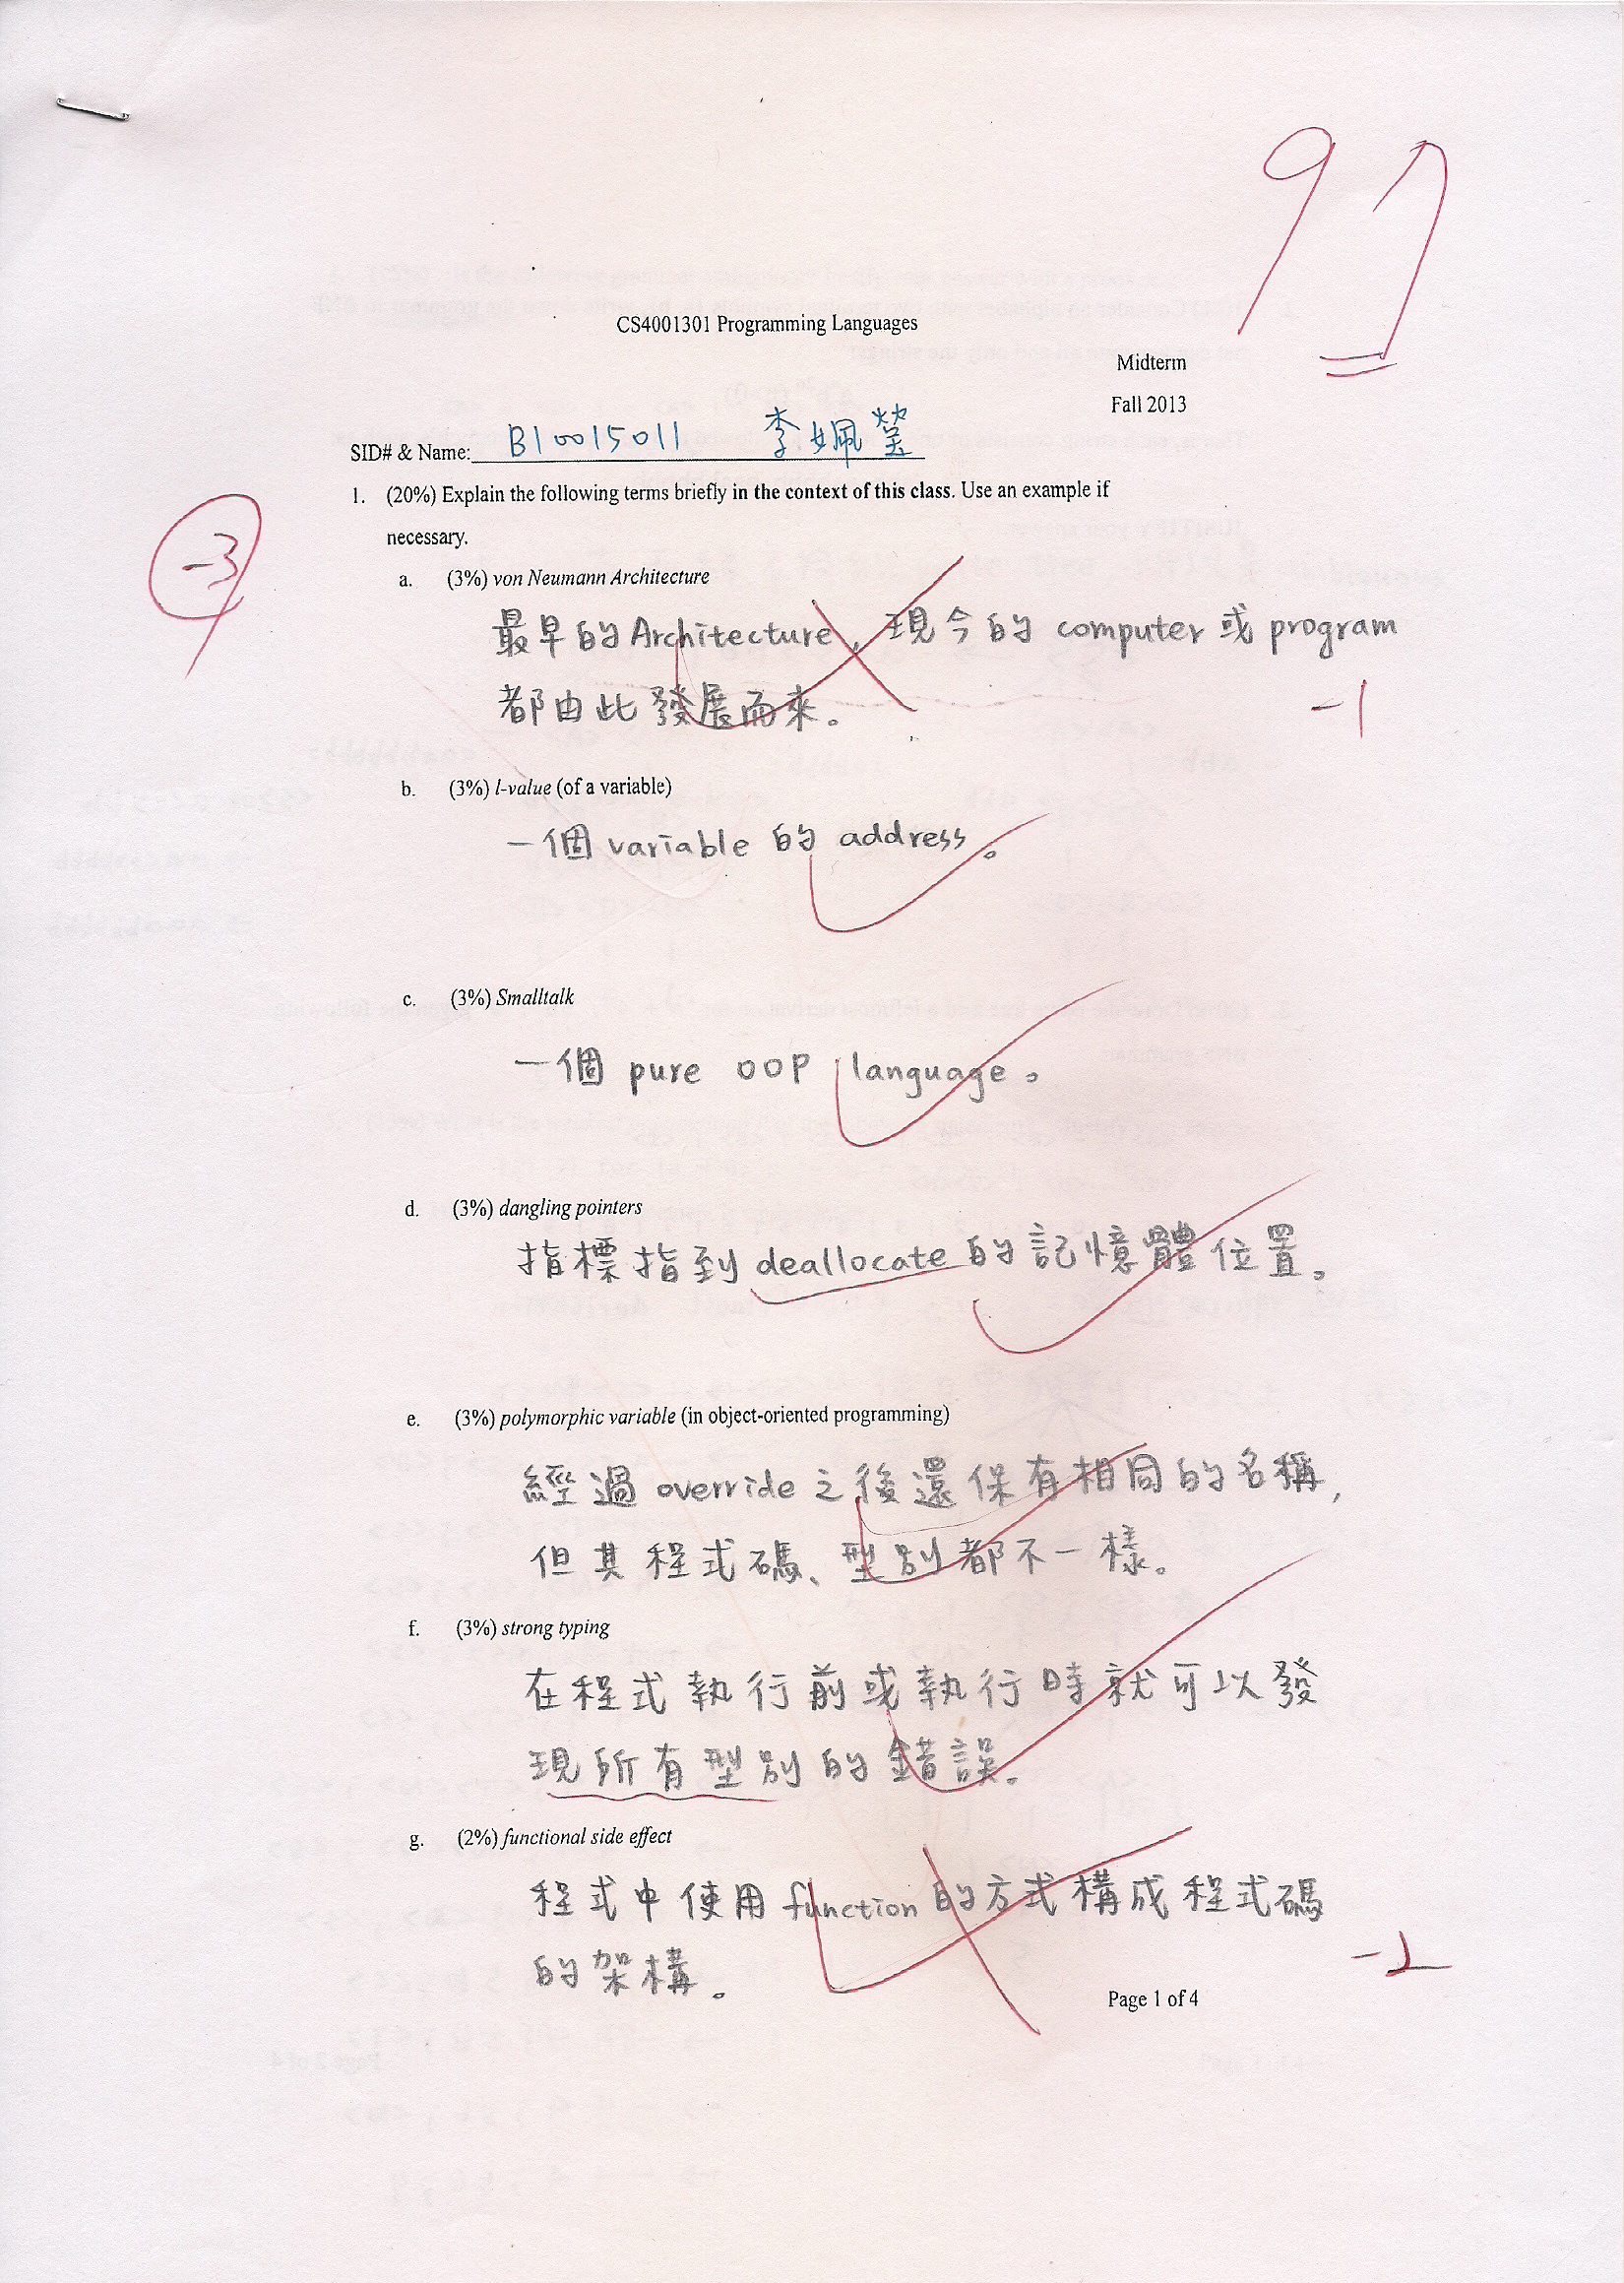 97
CS4001301 Programming Languages
Midterm
Fall 2013
SID# & Name: B10015011 李姵瑩
1. (20%) Explain the following terms briefly in the context of this class. Use an example if
necessary.
-3
a. (3%) von Neumann Architecture
最早的Architecture, 現今的 computer 或 program
都由此發展而來。
-1
b. (3%) l-value (of a variable)
一個 variable 的 address。
c. (3%) Smalltalk
一個 pure OOP language。
d. (3%) dangling pointers
指標指到 deallocate 的記憶體位置。
e. (3%) polymorphic variable (in object-oriented programming)
經過 override 之後還保有相同的名稱,
但其程式碼、型別都不一樣。
f. (3%) strong typing
在程式執行前或執行時就可以發
現所有型別的錯誤。
g. (2%) functional side effect
程式中使用 function 的方式構成程式碼
的架構。
-2
Page 1 of 4